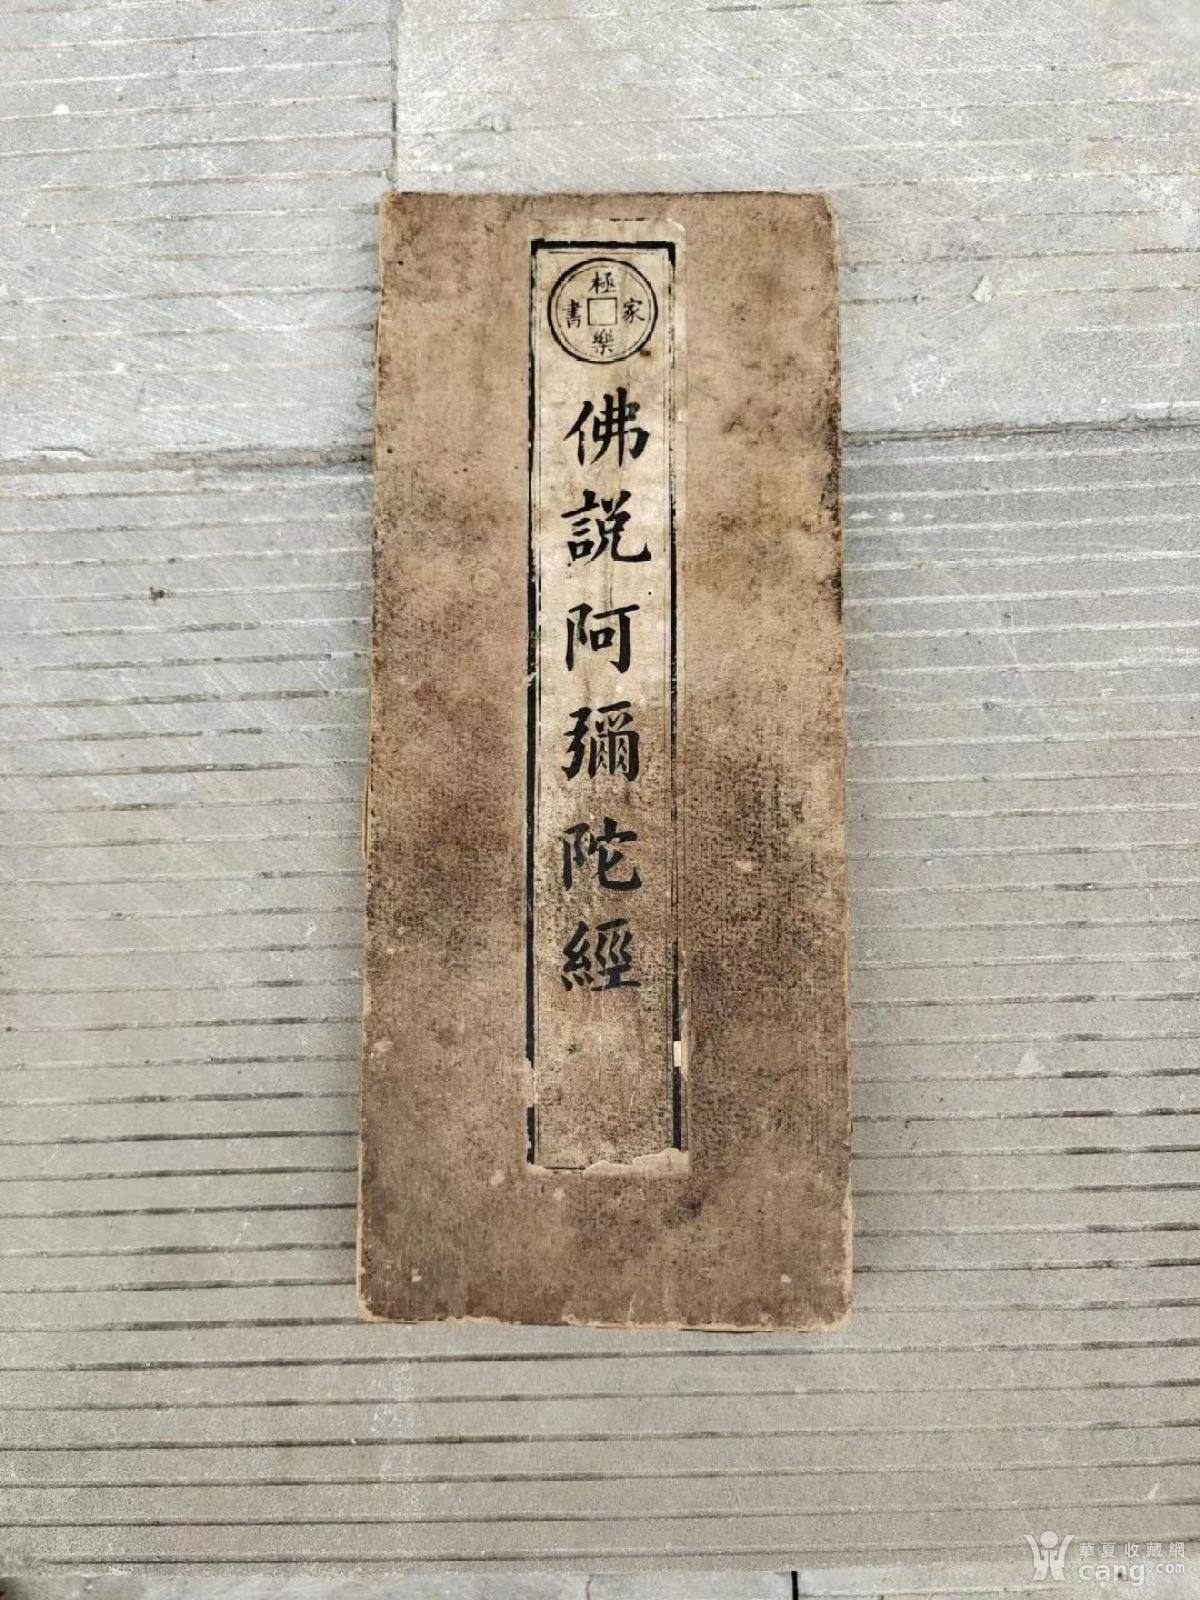 極樂家書
佛說阿彌陀經
華夏收藏網
cang.com